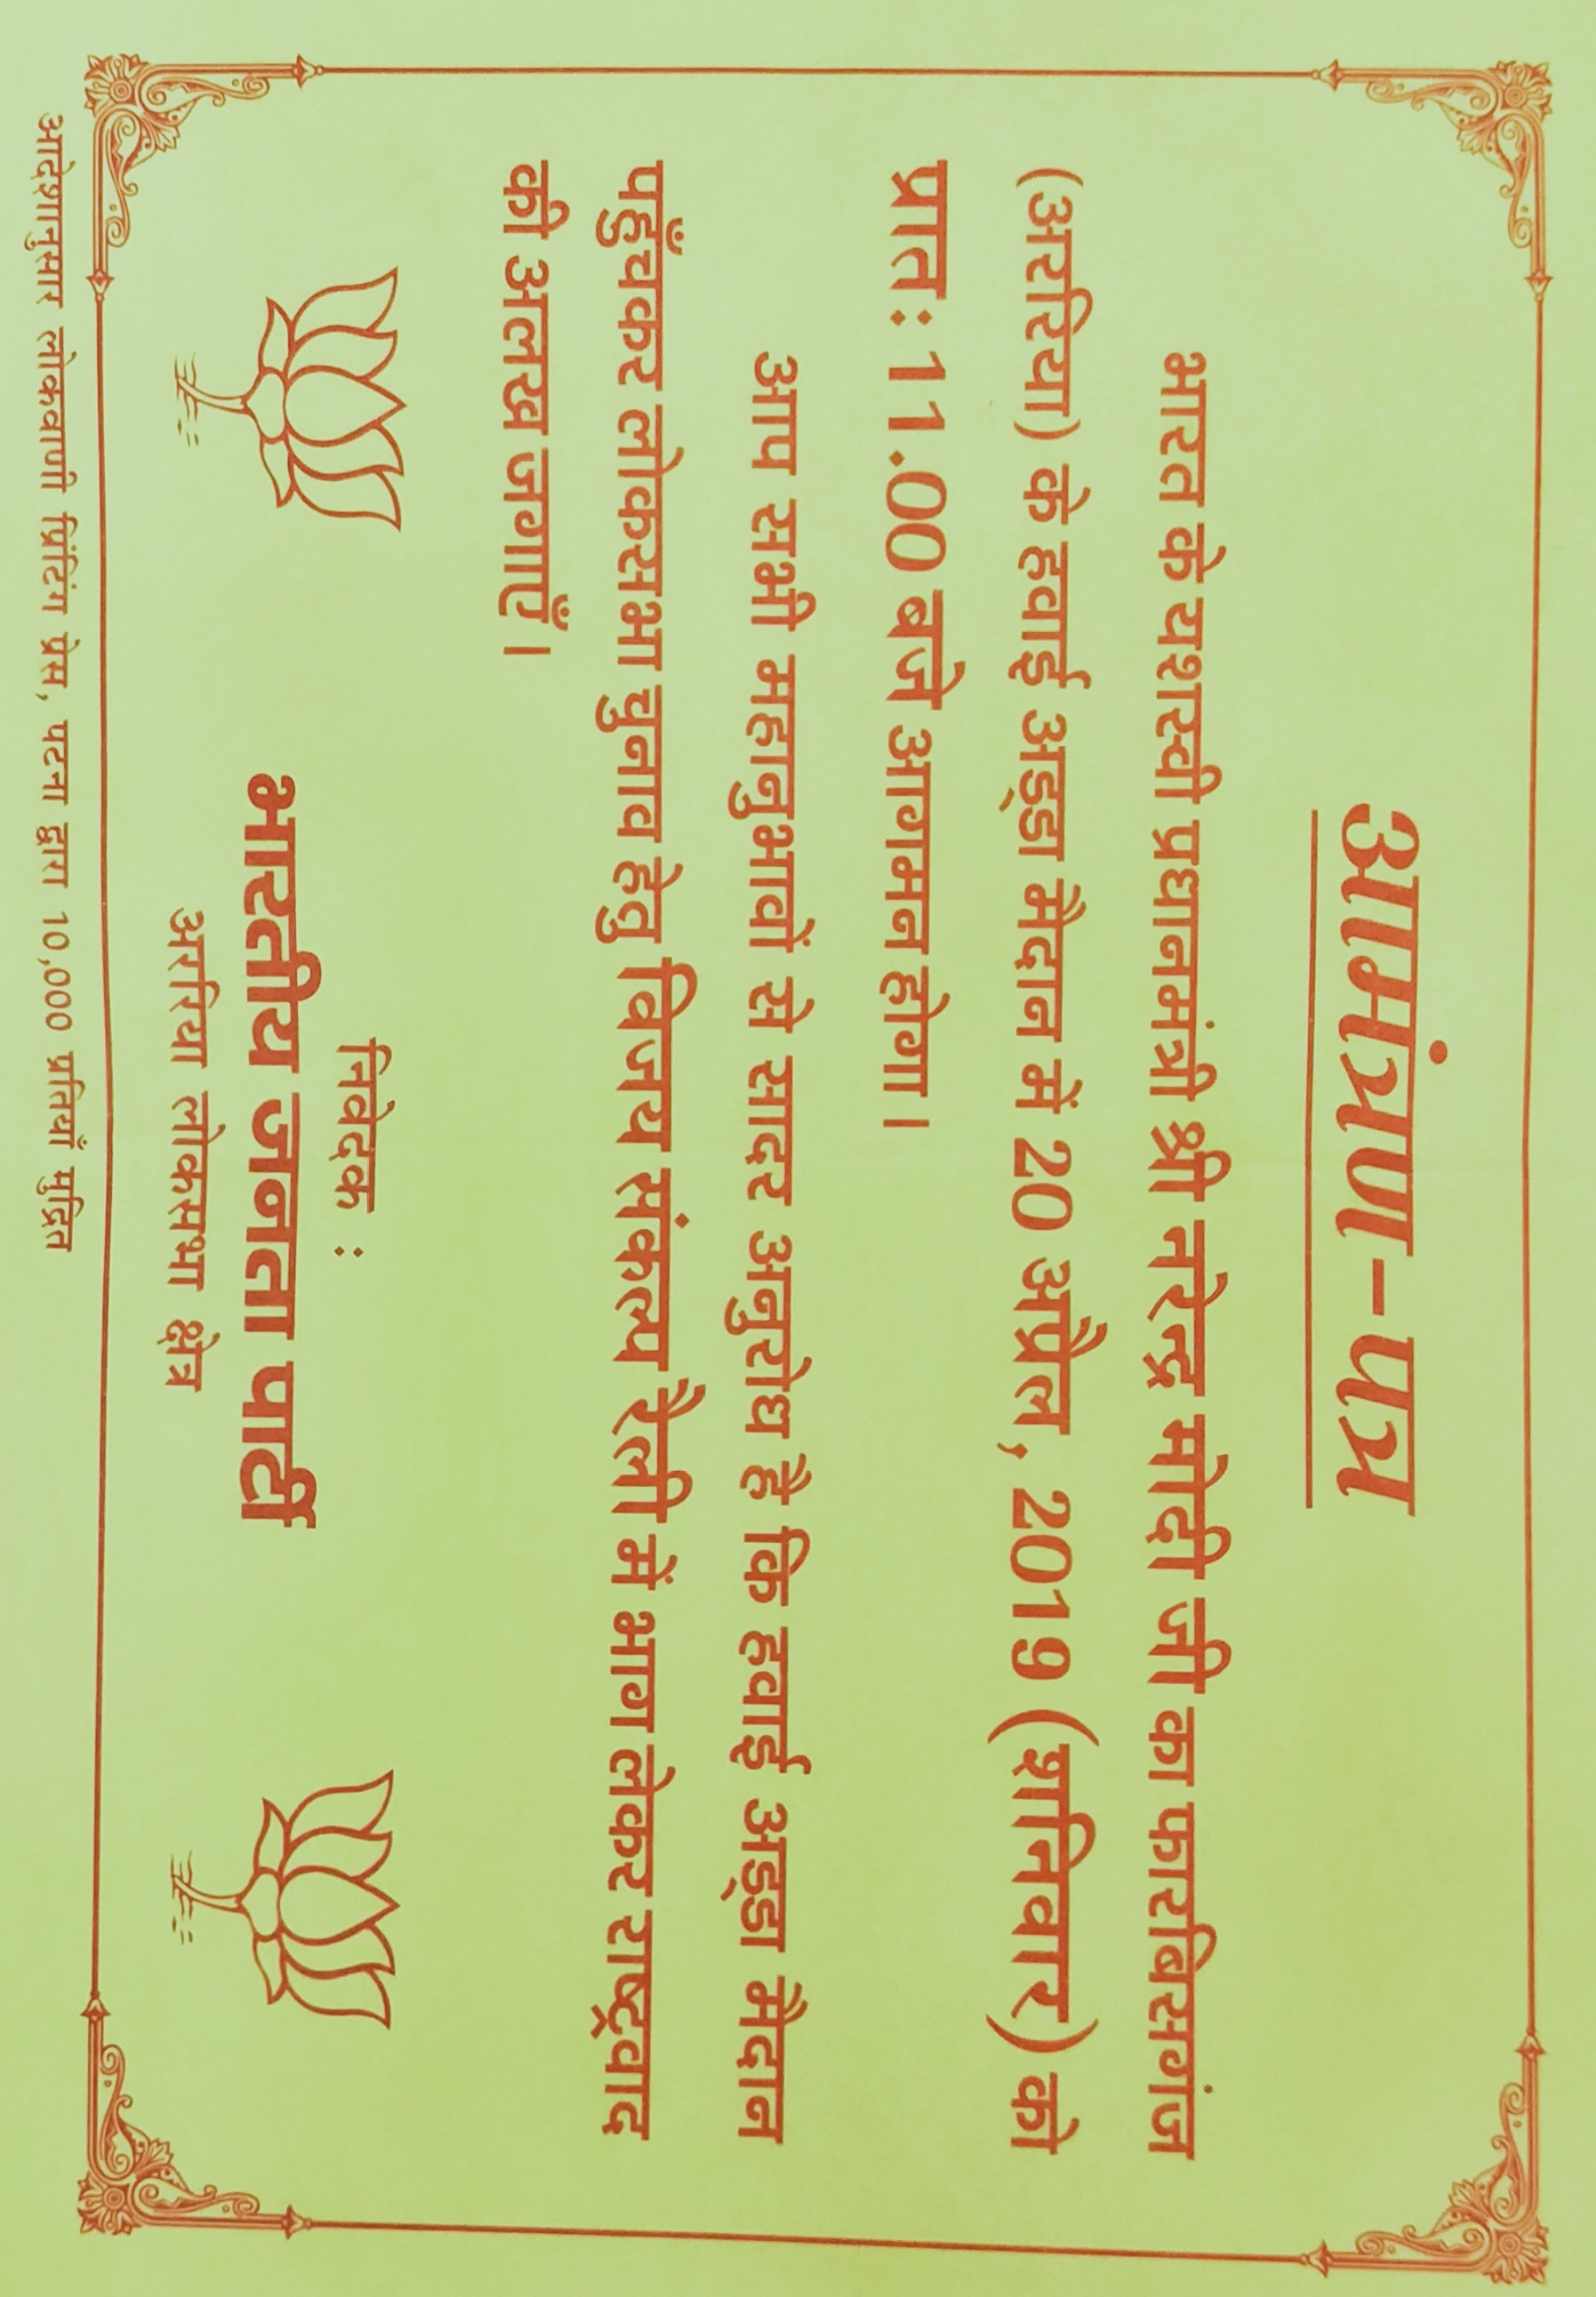 आमंत्रण-पत्र
भारत के यशस्वी प्रधानमंत्री श्री नरेन्द्र मोदी जी का फारबिसगंज
(अररिया) के हवाई अड्डा मैदान में 20 अप्रैल, 2019 (शनिवार) को
प्रातः 11.00 बजे आगमन होगा।
आप सभी महानुभावों से सादर अनुरोध है कि हवाई अड्डा मैदान
पहुँचकर लोकसभा चुनाव हेतु विजय संकल्प रैली में भाग लेकर राष्ट्रवाद
की अलख जगाएँ।
निवेदक :
भारतीय जनता पार्टी
अररिया लोकसभा क्षेत्र
आदेशानुसार लोकवाणी प्रिंटिंग प्रेस, पटना द्वारा 10,000 प्रतियाँ मुद्रित